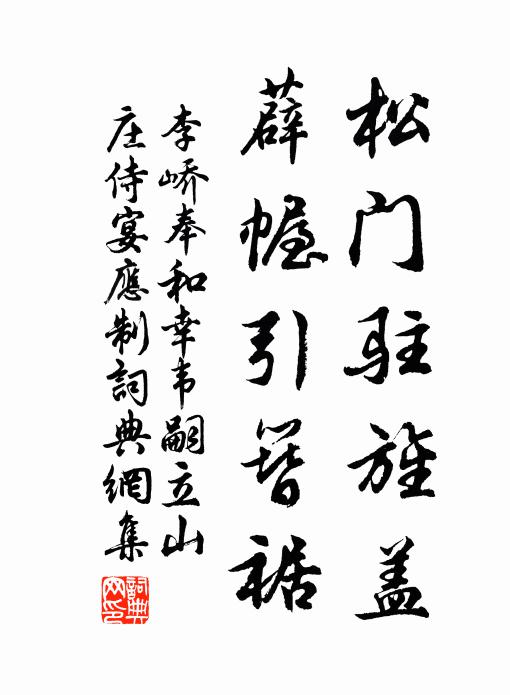 松门驻旌盖
薜幄引簪裾
李峤奉和幸韦嗣立山
庄侍宴應制詞典網集